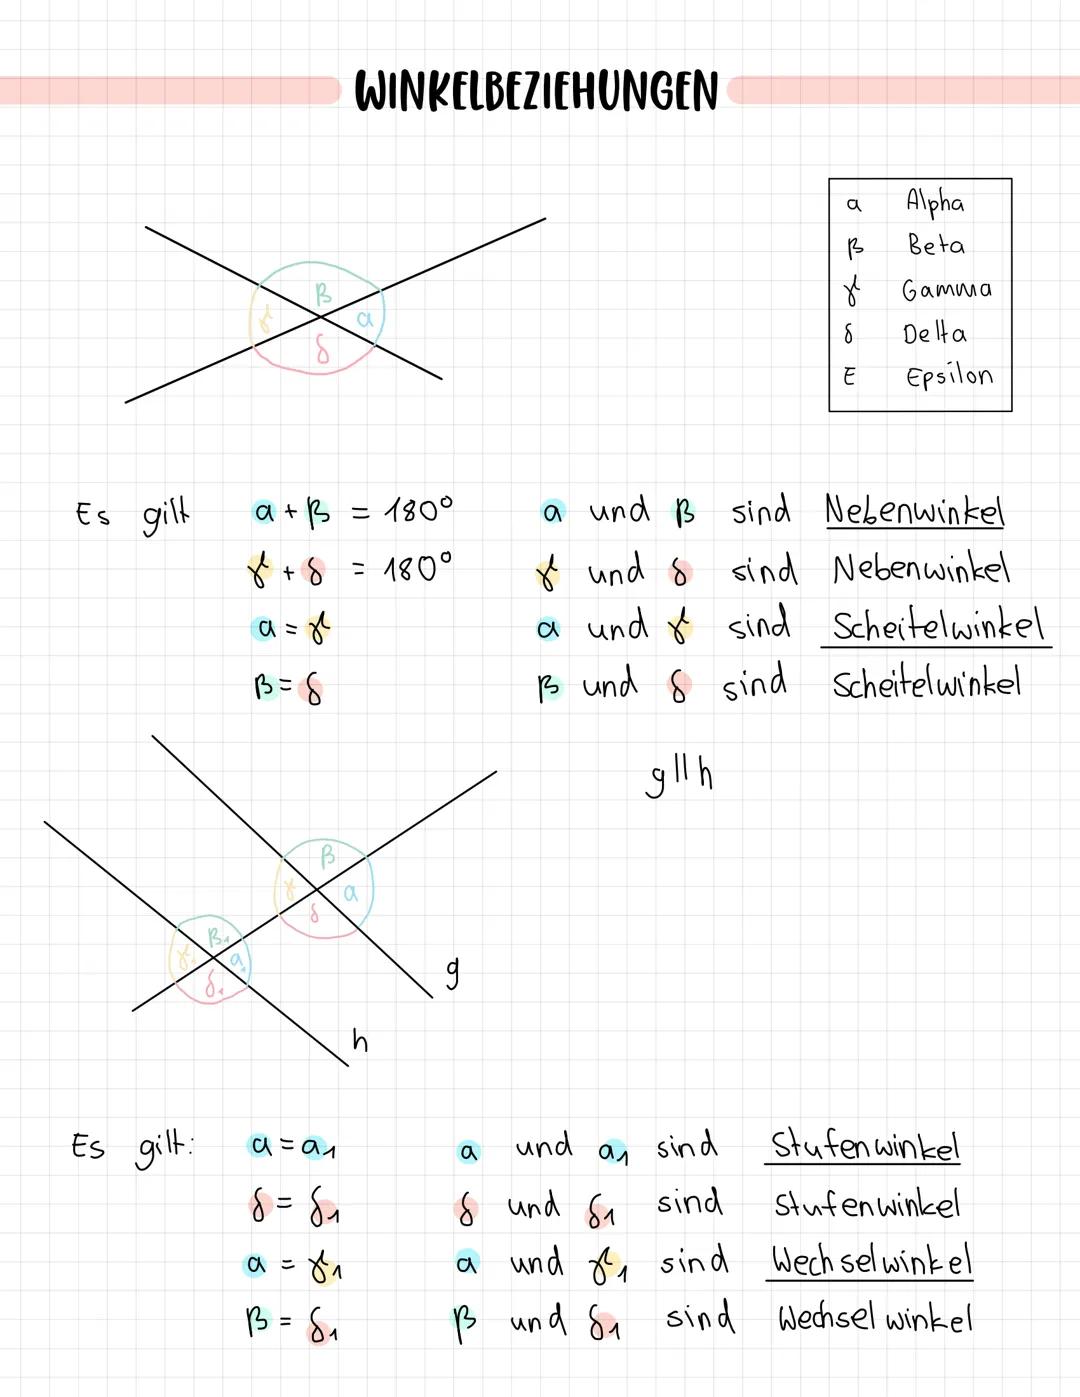 WINKELBEZIEHUNGEN
α Alpha
β Beta
γ Gamma
δ Delta
E Epsilon
β
γ α
δ
Es gilt α + β = 180° α und β sind Nebenwinkel
γ + δ = 180° γ und δ sind Nebenwinkel
α = γ α und γ sind Scheitelwinkel
β = δ β und δ sind Scheitelwinkel
g || h
β
γ α
δ
β₁
γ₁ α₁
δ₁
g
h
Es gilt: α = α₁ α und α₁ sind Stufenwinkel
δ = δ₁ δ und δ₁ sind Stufenwinkel
α = γ₁ α und γ₁ sind Wechselwinkel
β = δ₁ β und δ₁ sind Wechselwinkel